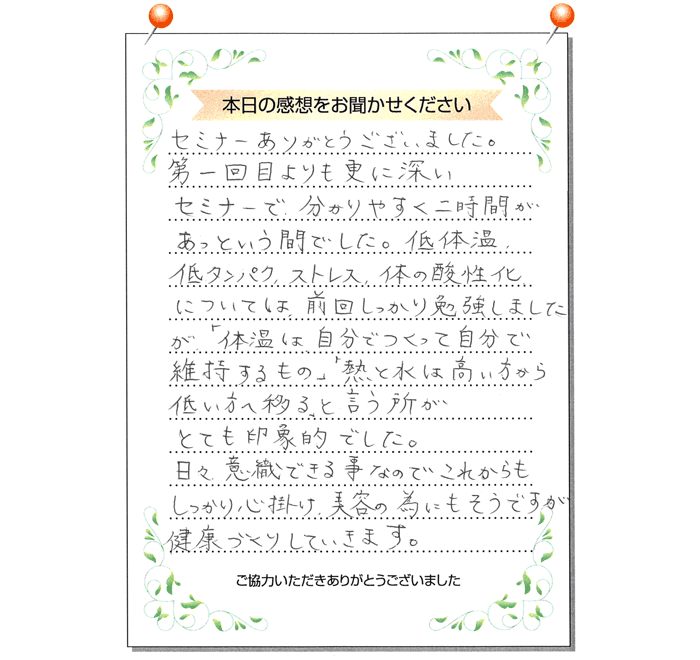 本日の感想をお聞かせください
セミナーありがとうございました。
第一回目よりも更に深い
セミナーで、分かりやすく二時間が
あっという間でした。低体温、
低タンパク、ストレス、体の酸性化
については、前回しっかり勉強しました
が、「体温は、自分でつくって自分で
維持するもの」「熱と水は高い方から
低い方へ移る」と言う所が
とても印象的でした。
日々、意識できる事なのでこれからも
しっかり心掛け、美容の為にもそうですが
健康づくりしていきます。
ご協力いただきありがとうございました